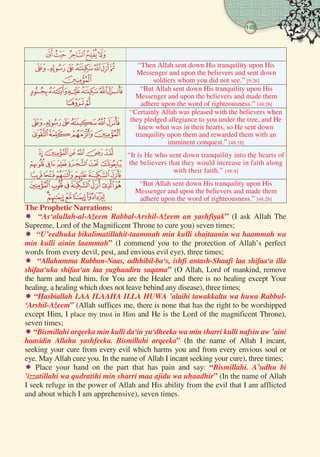 168
وَلَا يُفْلِحُ السَّاحِرُ حَيْثُ أَتَىٰ
ثُمَّ أَنزَلَ اللَّهُ سَكِينَتَهُ عَلَىٰ رَسُولِهِ وَعَلَى
الْمُؤْمِنِينَ
“Then Allah sent down His tranquility upon His
Messenger and upon the believers and sent down
soldiers whom you did not see.” [9:26]
“But Allah sent down His tranquility upon His
Messenger and upon the believers and made them
adhere upon the word of righteousness.” [48:26]
“Certainly Allah was pleased with the believers when
they pledged allegiance to you under the tree, and He
knew what was in their hearts, so He sent down
tranquility upon them and rewarded them with an
imminent conquest.” [48:18]
“It is He who sent down tranquility into the hearts of
the believers that they would increase in faith along
with their faith.” [48:4]
“But Allah sent down His tranquility upon His
Messenger and upon the believers and made them
adhere upon the word of righteousness.” [48:26]
The Prophetic Narrations:
“As’alullah-al-Aẓeem Rabbal-Arshil-Aẓeem an yashfiyak” (I ask Allah The
Supreme, Lord of the Magnificent Throne to cure you) seven times;
“U’eedhuka bikalimatillahit-taammah min kulli shaiṭaanin wa haammah wa
min kulli ainin laammah” (I commend you to the protection of Allah’s perfect
words from every devil, pest, and envious evil eye), three times;
“Allahumma Rabban-Naas, adhhibil-ba’s, ishfi antash-Shaafi laa shifaa’a illa
shifaa’uka shifaa’an laa yughaadiru saqama” (O Allah, Lord of mankind, remove
the harm and heal him, for You are the Healer and there is no healing except Your
healing, a healing which does not leave behind any disease), three times;
“Hasbiallah LAA ILAAHA ILLA HUWA ’alaihi tawakkaltu wa huwa Rabbul-
’Arshil-Aẓeem” (Allah suffices me, there is none that has the right to be worshipped
except Him, I place my trust in Him and He is the Lord of the magnificent Throne),
seven times;
“Bismillahi arqeeka min kulli da’in yu’dheeka wa min sharri kulli nafsin aw ’aini
haasidin Allahu yashfeeka. Bismillahi arqeeka” (In the name of Allah I incant,
seeking your cure from every evil which harms you and from every envious soul or
eye. May Allah cure you. In the name of Allah I incant seeking your cure), three times;
Place your hand on the part that has pain and say: “Bismillahi. A’udhu bi
’izzatillahi wa qudratihi min sharri maa ajidu wa uḥaadhir” (In the name of Allah
I seek refuge in the power of Allah and His ability from the evil that I am afflicted
and about which I am apprehensive), seven times.